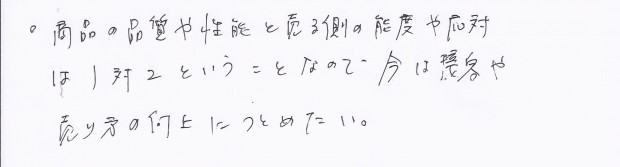 。商品の品質や性能と売る側の態度や応対
は1対2ということなので今は接客や
売り方の向上につとめたい。